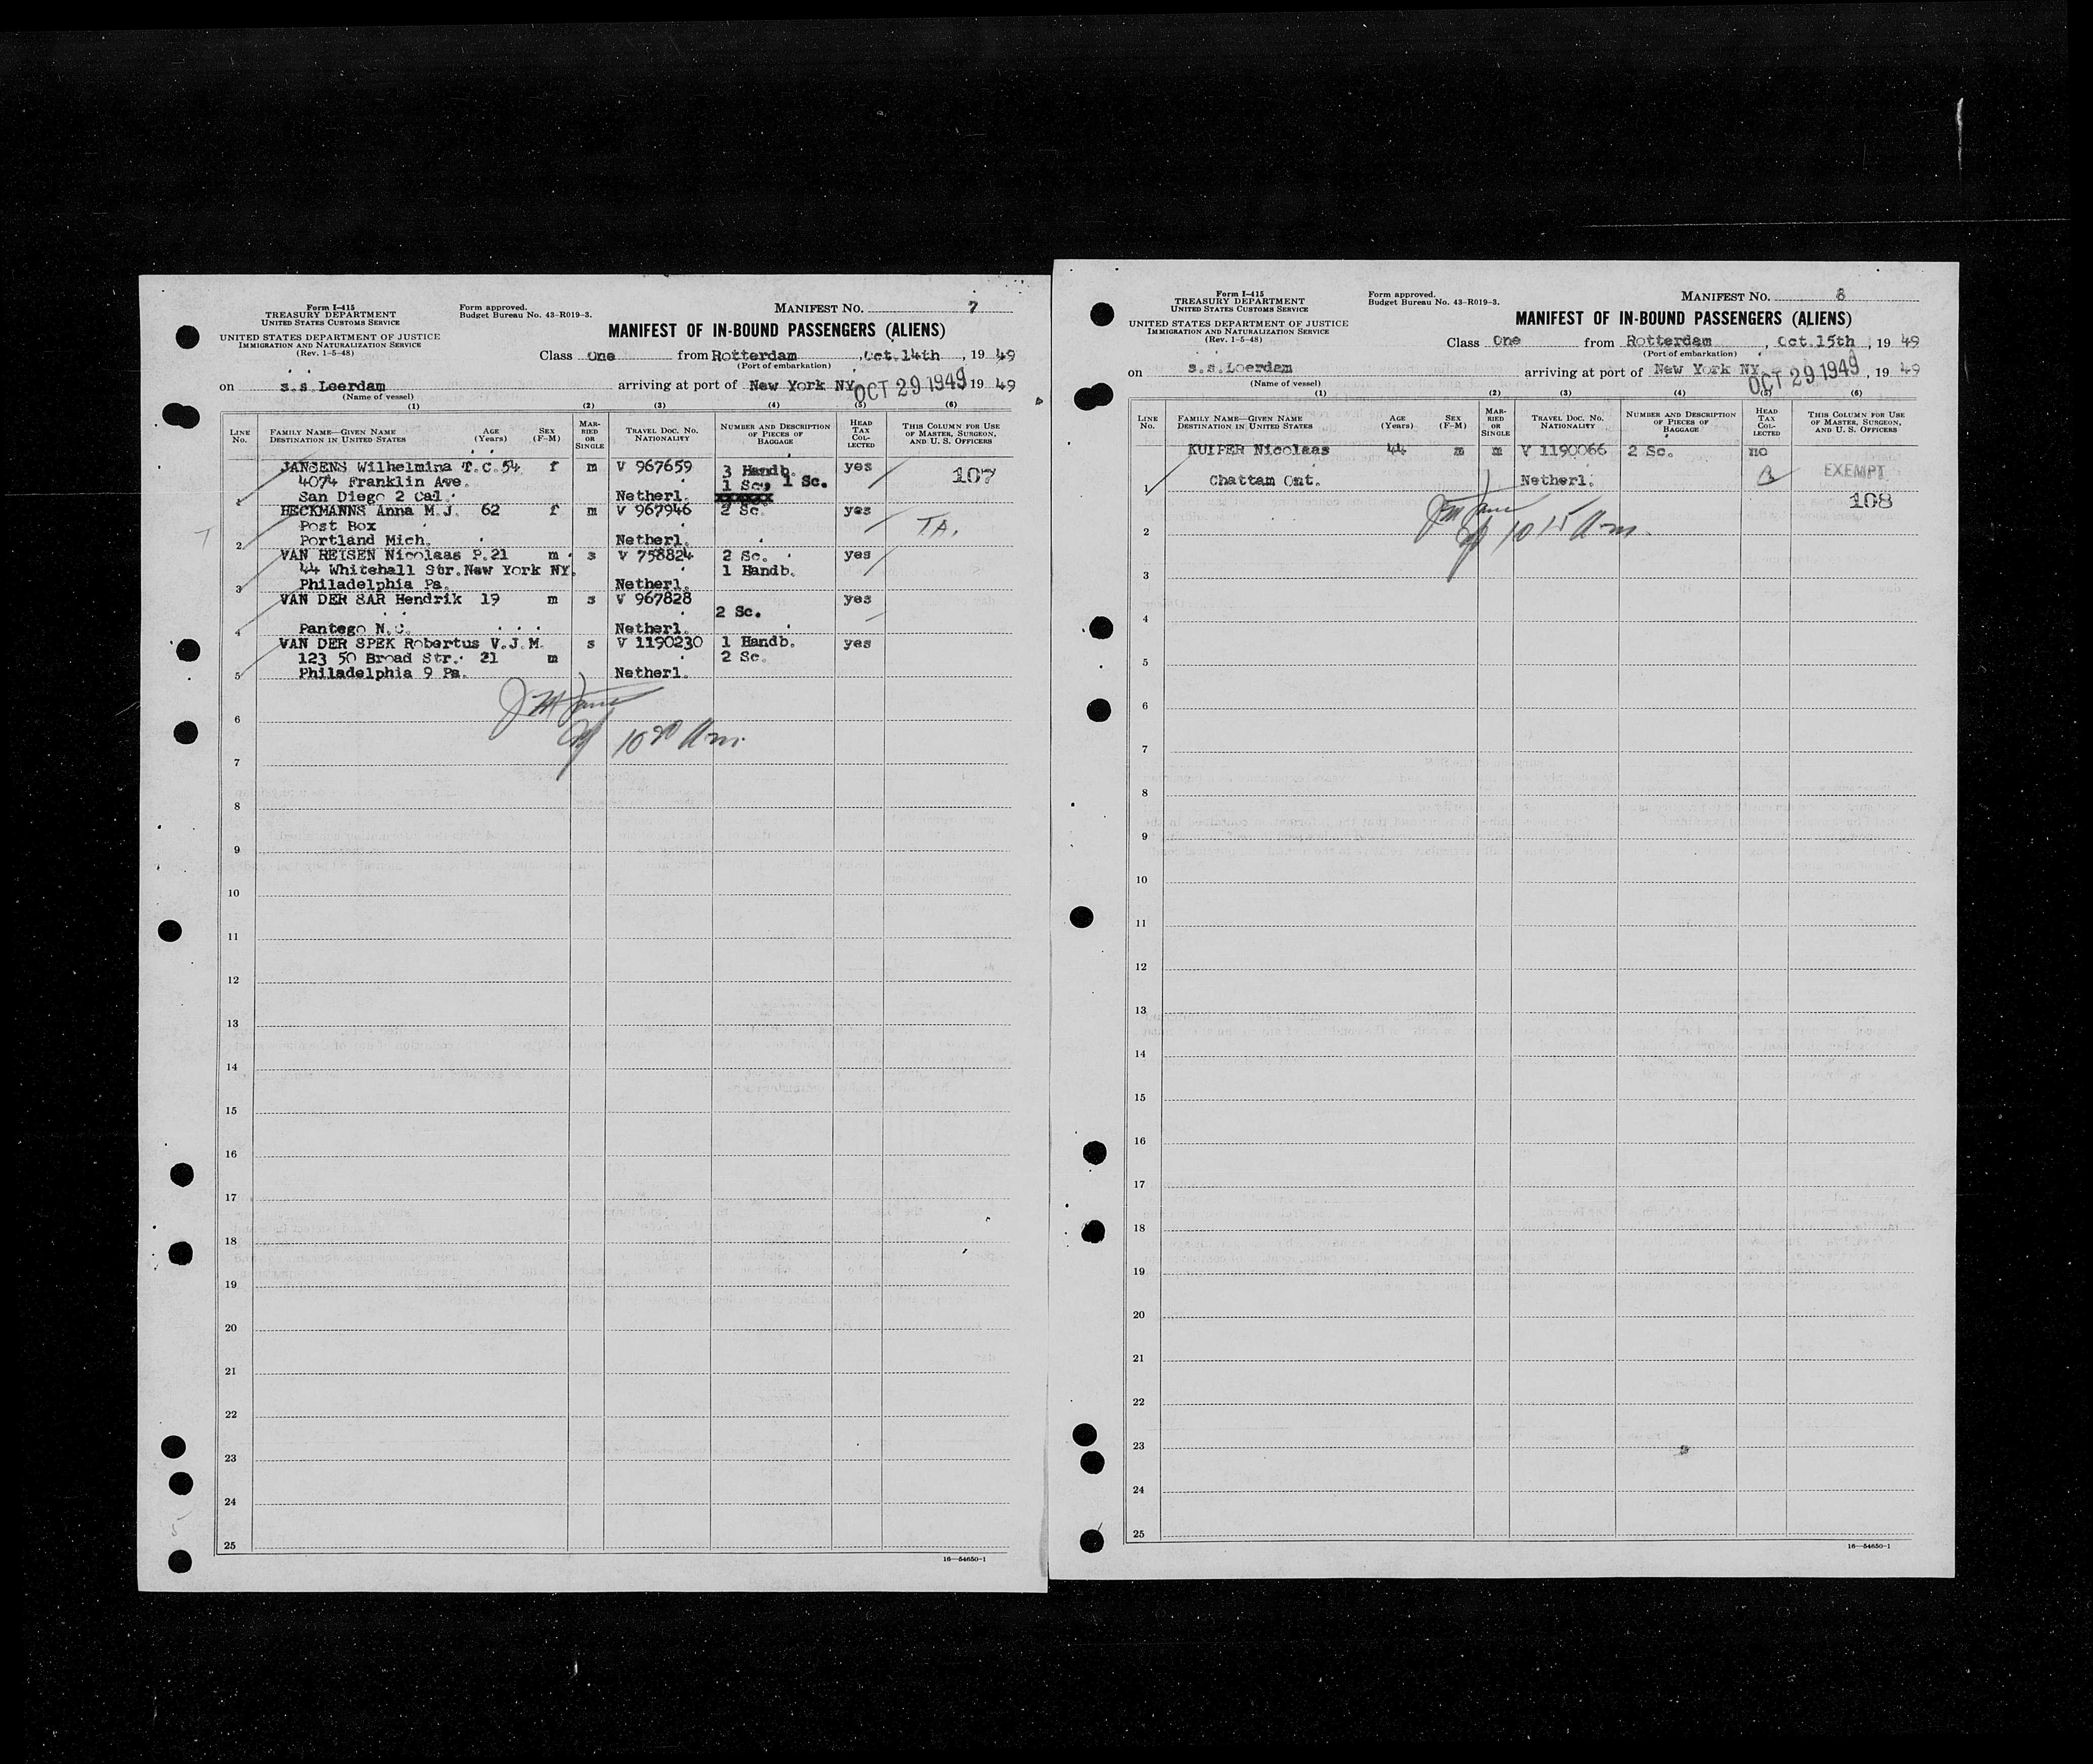 Form I-415
TREASURY DEPARTMENT
UNITED STATES CUSTOMS SERVICE
UNITED STATES DEPARTMENT OF JUSTICE
IMMIGRATION AND NATURALIZATION SERVICE
(Rev. 1-5-48)
Form approved.
Budget Bureau No. 43-R019-3.
MANIFEST No. 7
MANIFEST OF IN-BOUND PASSENGERS (ALIENS)
Class One from Rotterdam, Oct.14th, 19 49
(Port of embarkation)
on s.s Leerdam arriving at port of New York NY OCT 29 1949 19 49
(Name of vessel)
(1) (2) (3) (4) (5) (6)
LINE No. FAMILY NAME—GIVEN NAME DESTINATION IN UNITED STATES AGE (Years) SEX (F-M) MARRIED OR SINGLE TRAVEL DOC. NO. NATIONALITY NUMBER AND DESCRIPTION OF PIECES OF BAGGAGE HEAD TAX COLLECTED THIS COLUMN FOR USE OF MASTER, SURGEON, AND U. S. OFFICERS
JANSENS Wilhelmina T.C. 54 f m V 967659 3 Handb. yes 107
4074 Franklin Ave. 1 Sc, 1 Sc.
1 San Diego 2 Cal. Netherl. xxxxxx
HECKMANNS Anna M.J. 62 f m V 967946 2 Sc. yes
Post Box T.A.
2 Portland Mich. Netherl.
VAN REISEN Nicolaas P. 21 m s V 758824 2 Sc. yes
44 Whitehall Str.New York NY. 1 Handb.
3 Philadelphia Pa. Netherl.
VAN DER SAR Hendrik 19 m s V 967828 yes
2 Sc.
4 Pantego N.C. Netherl.
VAN DER SPEK Robertus V.J.M. s V 1190230 1 Handb. yes
123 50 Broad Str. 21 m 2 Sc.
5 Philadelphia 9 Pa. Netherl.
6
10 20 Am.
7
8
9
10
11
12
13
14
15
16
17
18
19
20
21
22
23
24
25
16—54650-1
Form I-415
TREASURY DEPARTMENT
UNITED STATES CUSTOMS SERVICE
UNITED STATES DEPARTMENT OF JUSTICE
IMMIGRATION AND NATURALIZATION SERVICE
(Rev. 1-5-48)
Form approved.
Budget Bureau No. 43-R019-3.
MANIFEST No. 8
MANIFEST OF IN-BOUND PASSENGERS (ALIENS)
Class One from Rotterdam, Oct.15th, 19 49
(Port of embarkation)
on s.s.Leerdam arriving at port of New York NY OCT 29 1949, 19 49
(Name of vessel)
(1) (2) (3) (4) (5) (6)
LINE No. FAMILY NAME—GIVEN NAME DESTINATION IN UNITED STATES AGE (Years) SEX (F-M) MARRIED OR SINGLE TRAVEL DOC. NO. NATIONALITY NUMBER AND DESCRIPTION OF PIECES OF BAGGAGE HEAD TAX COLLECTED THIS COLUMN FOR USE OF MASTER, SURGEON, AND U. S. OFFICERS
KUIPER Nicolaas 44 m m V 1190066 2 Sc. no
EXEMPT
1 Chattam Ont. Netherl.
108
2 10 15 Am.
3
4
5
6
7
8
9
10
11
12
13
14
15
16
17
18
19
20
21
22
23
24
25
16—54650-1